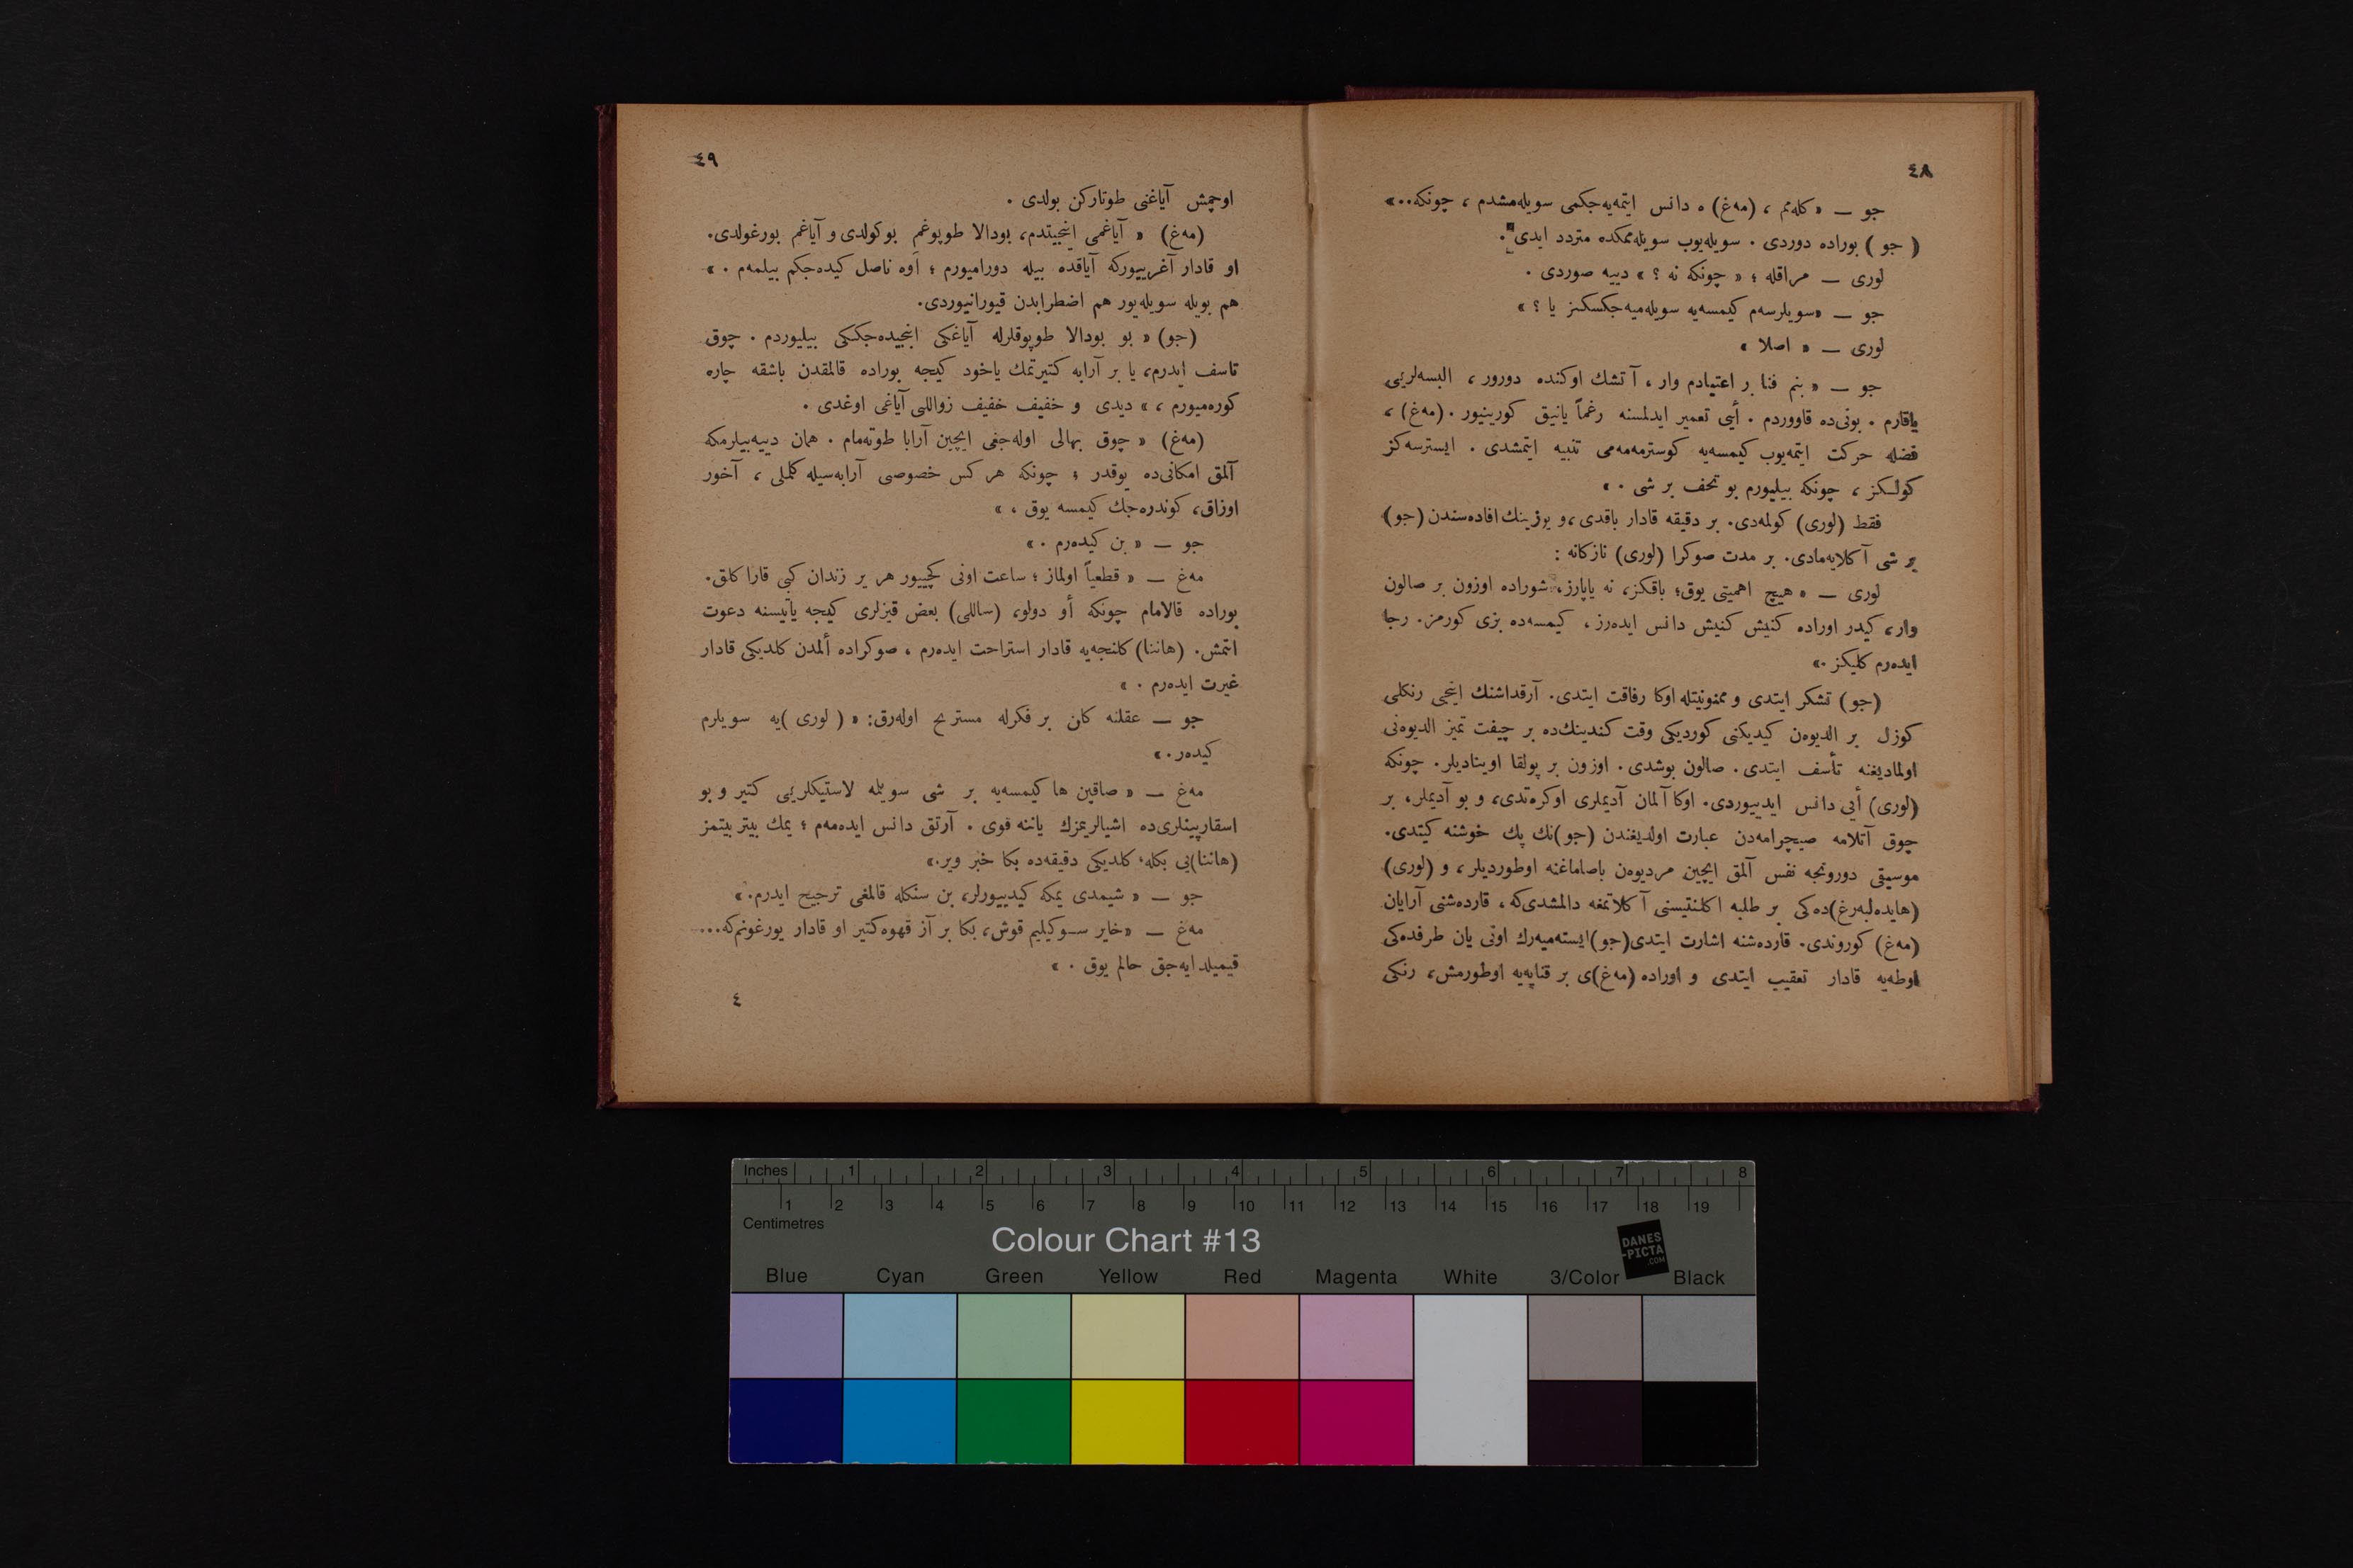 ٤٨
جو — « كله‌مم ، (مه‌غ) ه دانس ایتمه‌یه‌جكمی سویله‌مشدم ، چونكه..»
( جو ) بوراده دوردی . سویله‌یوب سویله‌ممكده متردد ایدی .
لوری — مراقله ؛ « چونكه نه ؟ » دییه صوردی .
جو — «سویلرسه‌م كیمسه‌یه سویله‌میه‌جكسكز یا ؟ »
لوری — « اصلا »
جو — « بنم فنا بر اعتیادم وار ، آتشك اوكنده دورور ، البسه‌لریمی
یاقارم . بونی‌ده قاووردم . أیی تعمیر ایدلمسنه رغماً یانیق كورینیور . (مه‌غ) ،
فضله حركت ایتمه‌یوب كیمسه‌یه كوسترمه‌مه‌می تنبیه ایتمشدی . ایسترسه‌كز
كولكز ، چونكه بیلیورم بو تحف بر شی . »
فقط (لوری) كولمه‌دی. بر دقیقه قادار باقدی ،و یوزینك افاده‌سندن (جو)
بر شی آكلایه‌مادی. بر مدت صوكرا (لوری) نازكانه :
لوری — « هیچ اهمیتی یوق؛ باقكز، نه یاپارز، شوراده اوزون بر صالون
وار، كیدر اوراده كنیش كنیش دانس ایده‌رز ، كیمسه‌ده بزی كورمز. رجا
ایده‌رم كلیكز .»
(جو) تشكر ایتدی و ممنونیتله اوكا رفاقت ایتدی. آرقداشنك اینجی رنكلی
كوزل بر الدیوه‌ن كیدیكنی كوردیكی وقت كندینك‌ده بر چیفت تمیز الدیوه‌نی
اولمادیغنه تأسف ایتدی . صالون بوشدی . اوزون بر پولقا اوینادیلر . چونكه
(لوری) أیی دانس ایدییوردی. اوكا آلمان آدیملری اوكره‌تدی، و بو آدیملر، بر
چوق آتلامه صیچرامه‌دن عبارت اولدیغندن (جو)نك پك خوشنه كیتدی.
موسیقی دورونجه نفس آلمق ایچین مردیوه‌ن باصاماغنه اوطوردیلر ، و (لوری)
(هایده‌لبه‌رغ)ده‌كی بر طلبه اكلنتیسنی آكلاتمغه دالمشدی‌كه ، قارده‌شنی آرایان
(مه‌غ) كوروندی. قارده‌شنه اشارت ایتدی(جو)ایسته‌میه‌رك اونی یان طرفده‌كی
اوطه‌یه قادار تعقیب ایتدی و اوراده (مه‌غ)ی بر قنابه‌یه اوطورمش، رنكی
٤٩
اوچمش آیاغنی طوتاركن بولدی .
(مه‌غ) « آیاغمی اینجیتدم، بودالا طوپوغم بوكولدی و آیاغم بورغولدی.
او قادار آغرییوركه آیاقده بیله دورامیورم ؛ أوه ناصل كیده‌جكم بیلمه‌م . »
هم بویله سویله‌یور هم اضطرابدن قیورانیوردی.
(جو) « بو بودالا طوپوقلرله آیاغكی اینجیده‌جككی بیلیوردم . چوق
تاسف ایدرم، یا بر آرابه كتیرتمك یاخود كیجه بوراده قالمقدن باشقه چاره
كوره‌میورم ، » دیدی و خفیف خفیف زواللی آیاغی اوغدی .
(مه‌غ) « چوق بهالی اوله‌جغی ایچین آرابا طوته‌مام . همان دییه‌بیلرمكه
آلمق امكانی‌ده یوقدر ؛ چونكه هر كس خصوصی آرابه‌سیله كلملی ، آخور
اوزاق، كوندره‌جك كیمسه یوق ، »
جو — « بن كیده‌رم . »
مه‌غ — « قطعیاً اولماز ؛ ساعت اونی كچییور هر یر زندان كبی قاراكلق.
بوراده قالامام چونكه أو دولو، (ساللی) بعض قیزلری كیجه یاتیسنه دعوت
اتمش. (هاننا) كلنجه‌یه قادار استراحت ایده‌رم ، صوكراده ألمدن كلدیكی قادار
غیرت ایده‌رم . »
جو — عقلنه كلن بر فكرله مستریح اوله‌رق: « ( لوری )یه سویلرم
كیده‌ر.»
مه‌غ — « صاقین ها كیمسه‌یه بر شی سویلمه لاستیكلریمی كتیر و بو
اسقارپینلری‌ده اشیالریمزك یاننه قوی . آرتق دانس ایده‌مم ؛ یمك بیتر بیتمز
(هاننا)یی بكله، كلدیكی دقیقه‌ده بكا خبر ویر.»
جو — « شیمدی یمكه كیدییورلر، بن سنكله قالمغی ترجیح ایدرم.»
مه‌غ — «خایر سوكیلیم قوش، بكا بر آز قهوه كتیر او قادار یورغونم‌كه...
قیمیلدایه‌جق حالم یوق . »
٤
Inches 1 2 3 4 5 6 7 8
1 2 3 4 5 6 7 8 9 10 11 12 13 14 15 16 17 18 19
Centimetres
Colour Chart #13
DANES
-PICTA
.COM
Blue Cyan Green Yellow Red Magenta White 3/Color Black